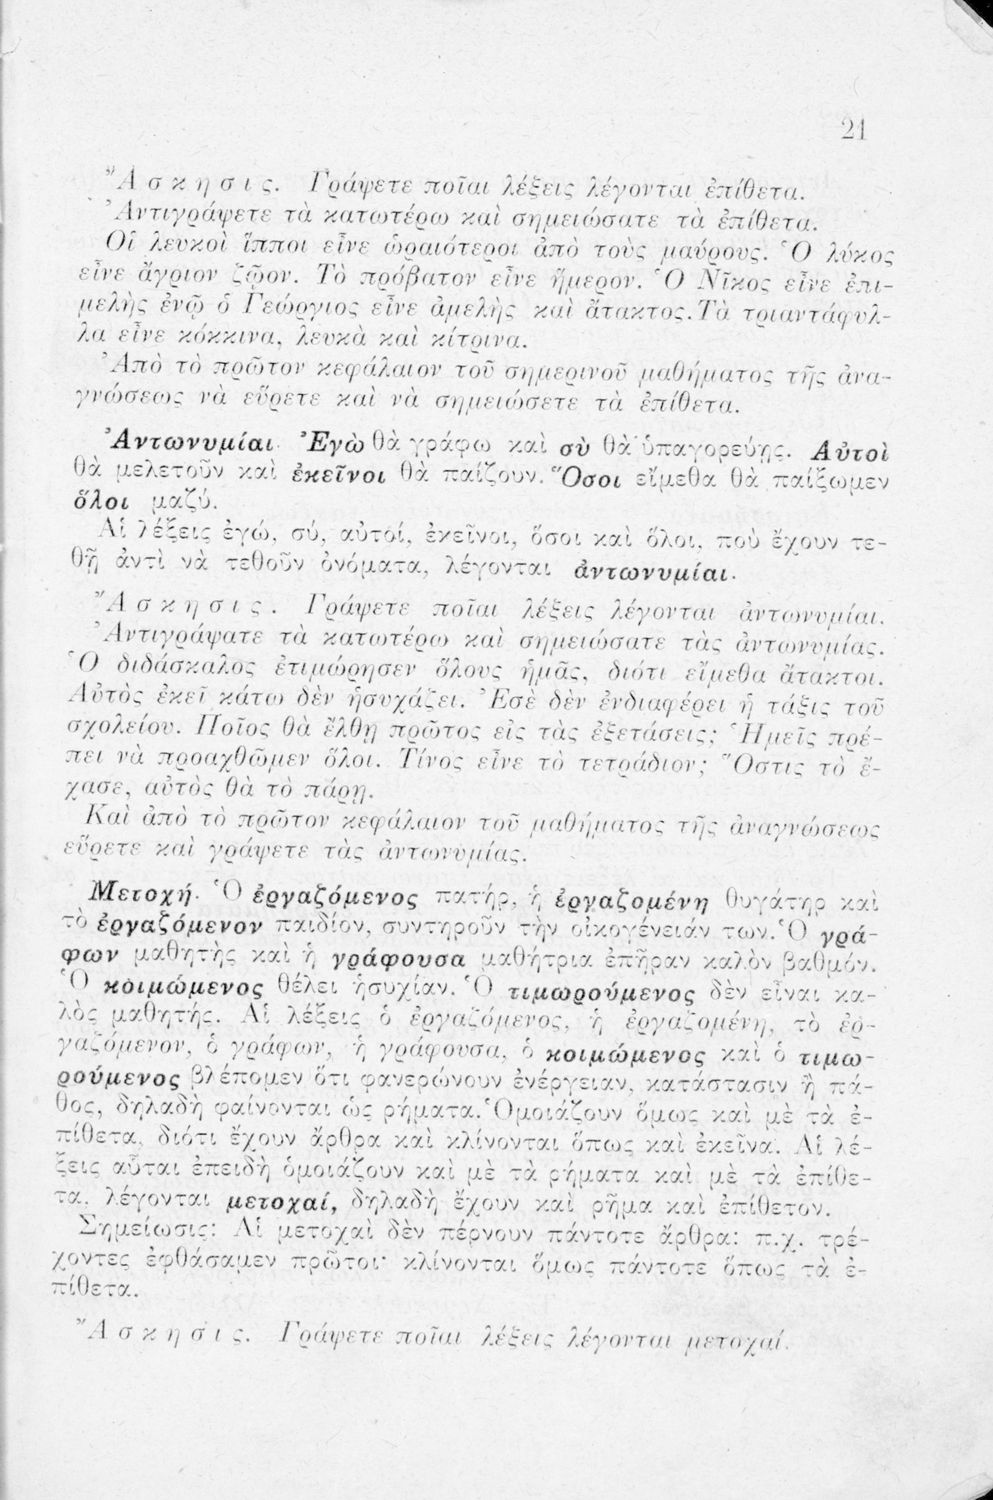 21
Ἄσκησις. Γράψετε ποῖαι λέξεις λέγονται ἐπίθετα.
Ἀντιγράψετε τὰ κατωτέρω καὶ σημειώσατε τὰ ἐπίθετα.
Οἱ λευκοὶ ἵπποι εἶνε ὡραιότεροι ἀπὸ τοὺς μαύρους. Ὁ λύκος
εἶνε ἄγριον ζῷον. Τὸ πρόβατον εἶνε ἥμερον. Ὁ Νῖκος εἶνε ἐπι-
μελὴς ἐνῷ ὁ Γεώργιος εἶνε ἀμελὴς καὶ ἄτακτος. Τὰ τριαντάφυλ-
λα εἶνε κόκκινα, λευκὰ καὶ κίτρινα.
Ἀπὸ τὸ πρῶτον κεφάλαιον τοῦ σημερινοῦ μαθήματος τῆς ἀνα-
γνώσεως νὰ εὕρετε καὶ νὰ σημειώσετε τὰ ἐπίθετα.
Ἀντωνυμίαι. Ἐγὼ θὰ γράφω καὶ σὺ θὰ ὑπαγορεύῃς. Αὐτοὶ
θὰ μελετοῦν καὶ ἐκεῖνοι θὰ παίζουν. Ὅσοι εἴμεθα θὰ παίξωμεν
ὅλοι μαζύ.
Αἱ λέξεις ἐγώ, σύ, αὐτοί, ἐκεῖνοι, ὅσοι καὶ ὅλοι, ποὺ ἔχουν τε-
θῆ ἀντὶ νὰ τεθοῦν ὀνόματα, λέγονται ἀντωνυμίαι.
Ἄσκησις. Γράψετε ποῖαι λέξεις λέγονται ἀντωνυμίαι.
Ἀντιγράψατε τὰ κατωτέρω καὶ σημειώσατε τὰς ἀντωνυμίας.
Ὁ διδάσκαλος ἐτιμώρησεν ὅλους ἡμᾶς, διότι εἴμεθα ἄτακτοι.
Αὐτὸς ἐκεῖ κάτω δὲν ἡσυχάζει. Ἐσὲ δὲν ἐνδιαφέρει ἡ τάξις τοῦ
σχολείου. Ποῖος θὰ ἔλθῃ πρῶτος εἰς τὰς ἐξετάσεις; Ἡμεῖς πρέ-
πει νὰ προαχθῶμεν ὅλοι. Τίνος εἶνε τὸ τετράδιον; Ὅστις τὸ ἔ-
χασε, αὐτὸς θὰ τὸ πάρῃ.
Καὶ ἀπὸ τὸ πρῶτον κεφάλαιον τοῦ μαθήματος τῆς ἀναγνώσεως
εὕρετε καὶ γράψετε τὰς ἀντωνυμίας.
Μετοχή. Ὁ ἐργαζόμενος πατήρ, ἡ ἐργαζομένη θυγάτηρ καὶ
τὸ ἐργαζόμενον παιδίον, συντηροῦν τὴν οἰκογένειάν των. Ὁ γρά-
φων μαθητὴς καὶ ἡ γράφουσα μαθήτρια ἐπῆραν καλὸν βαθμόν.
Ὁ κοιμώμενος θέλει ἡσυχίαν. Ὁ τιμωρούμενος δὲν εἶναι κα-
λὸς μαθητής. Αἱ λέξεις ὁ ἐργαζόμενος, ἡ ἐργαζομένη, τὸ ἐρ-
γαζόμενον, ὁ γράφων, ἡ γράφουσα, ὁ κοιμώμενος καὶ ὁ τιμω-
ρούμενος βλέπομεν ὅτι φανερώνουν ἐνέργειαν, κατάστασιν ἢ πά-
θος, δηλαδὴ φαίνονται ὡς ρήματα. Ὁμοιάζουν ὅμως καὶ μὲ τὰ ἐ-
πίθετα, διότι ἔχουν ἄρθρα καὶ κλίνονται ὅπως καὶ ἐκεῖνα. Αἱ λέ-
ξεις αὗται ἐπειδὴ ὁμοιάζουν καὶ μὲ τὰ ρήματα καὶ μὲ τὰ ἐπίθε-
τα, λέγονται μετοχαί, δηλαδὴ ἔχουν καὶ ρῆμα καὶ ἐπίθετον.
Σημείωσις: Αἱ μετοχαὶ δὲν πέρνουν πάντοτε ἄρθρα: π.χ. τρέ-
χοντες ἐφθάσαμεν πρῶτοι· κλίνονται ὅμως πάντοτε ὅπως τὰ ἐ-
πίθετα.
Ἄσκησις. Γράψετε ποῖαι λέξεις λέγονται μετοχαί.